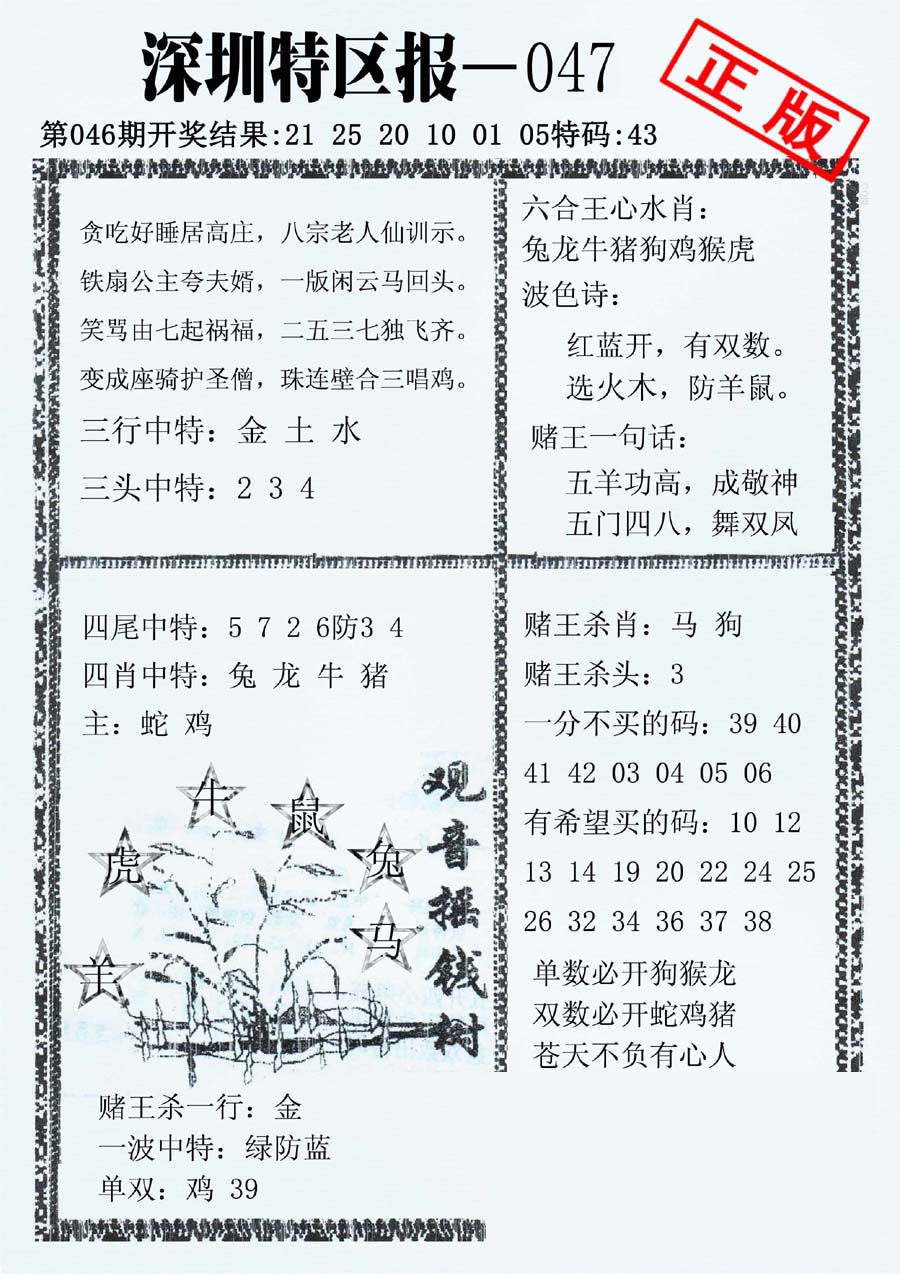 深圳特区报—047
正版
第046期开奖结果:21 25 20 10 01 05特码:43
贪吃好睡居高庄，八宗老人仙训示。
铁扇公主夸夫婿，一版闲云马回头。
笑骂由七起祸福，二五三七独飞齐。
变成座骑护圣僧，珠连壁合三唱鸡。
三行中特：金 土 水
三头中特：2 3 4
六合王心水肖：
兔龙牛猪狗鸡猴虎
波色诗：
红蓝开，有双数。
选火木，防羊鼠。
赌王一句话：
五羊功高，成敬神
五门四八，舞双凤
四尾中特：5 7 2 6防3 4
四肖中特：兔 龙 牛 猪
主：蛇 鸡
牛
鼠
虎
兔
马
羊
观音摇钱树
赌王杀一行：金
一波中特：绿防蓝
单双：鸡 39
赌王杀肖：马 狗
赌王杀头：3
一分不买的码：39 40
41 42 03 04 05 06
有希望买的码：10 12
13 14 19 20 22 24 25
26 32 34 36 37 38
单数必开狗猴龙
双数必开蛇鸡猪
苍天不负有心人